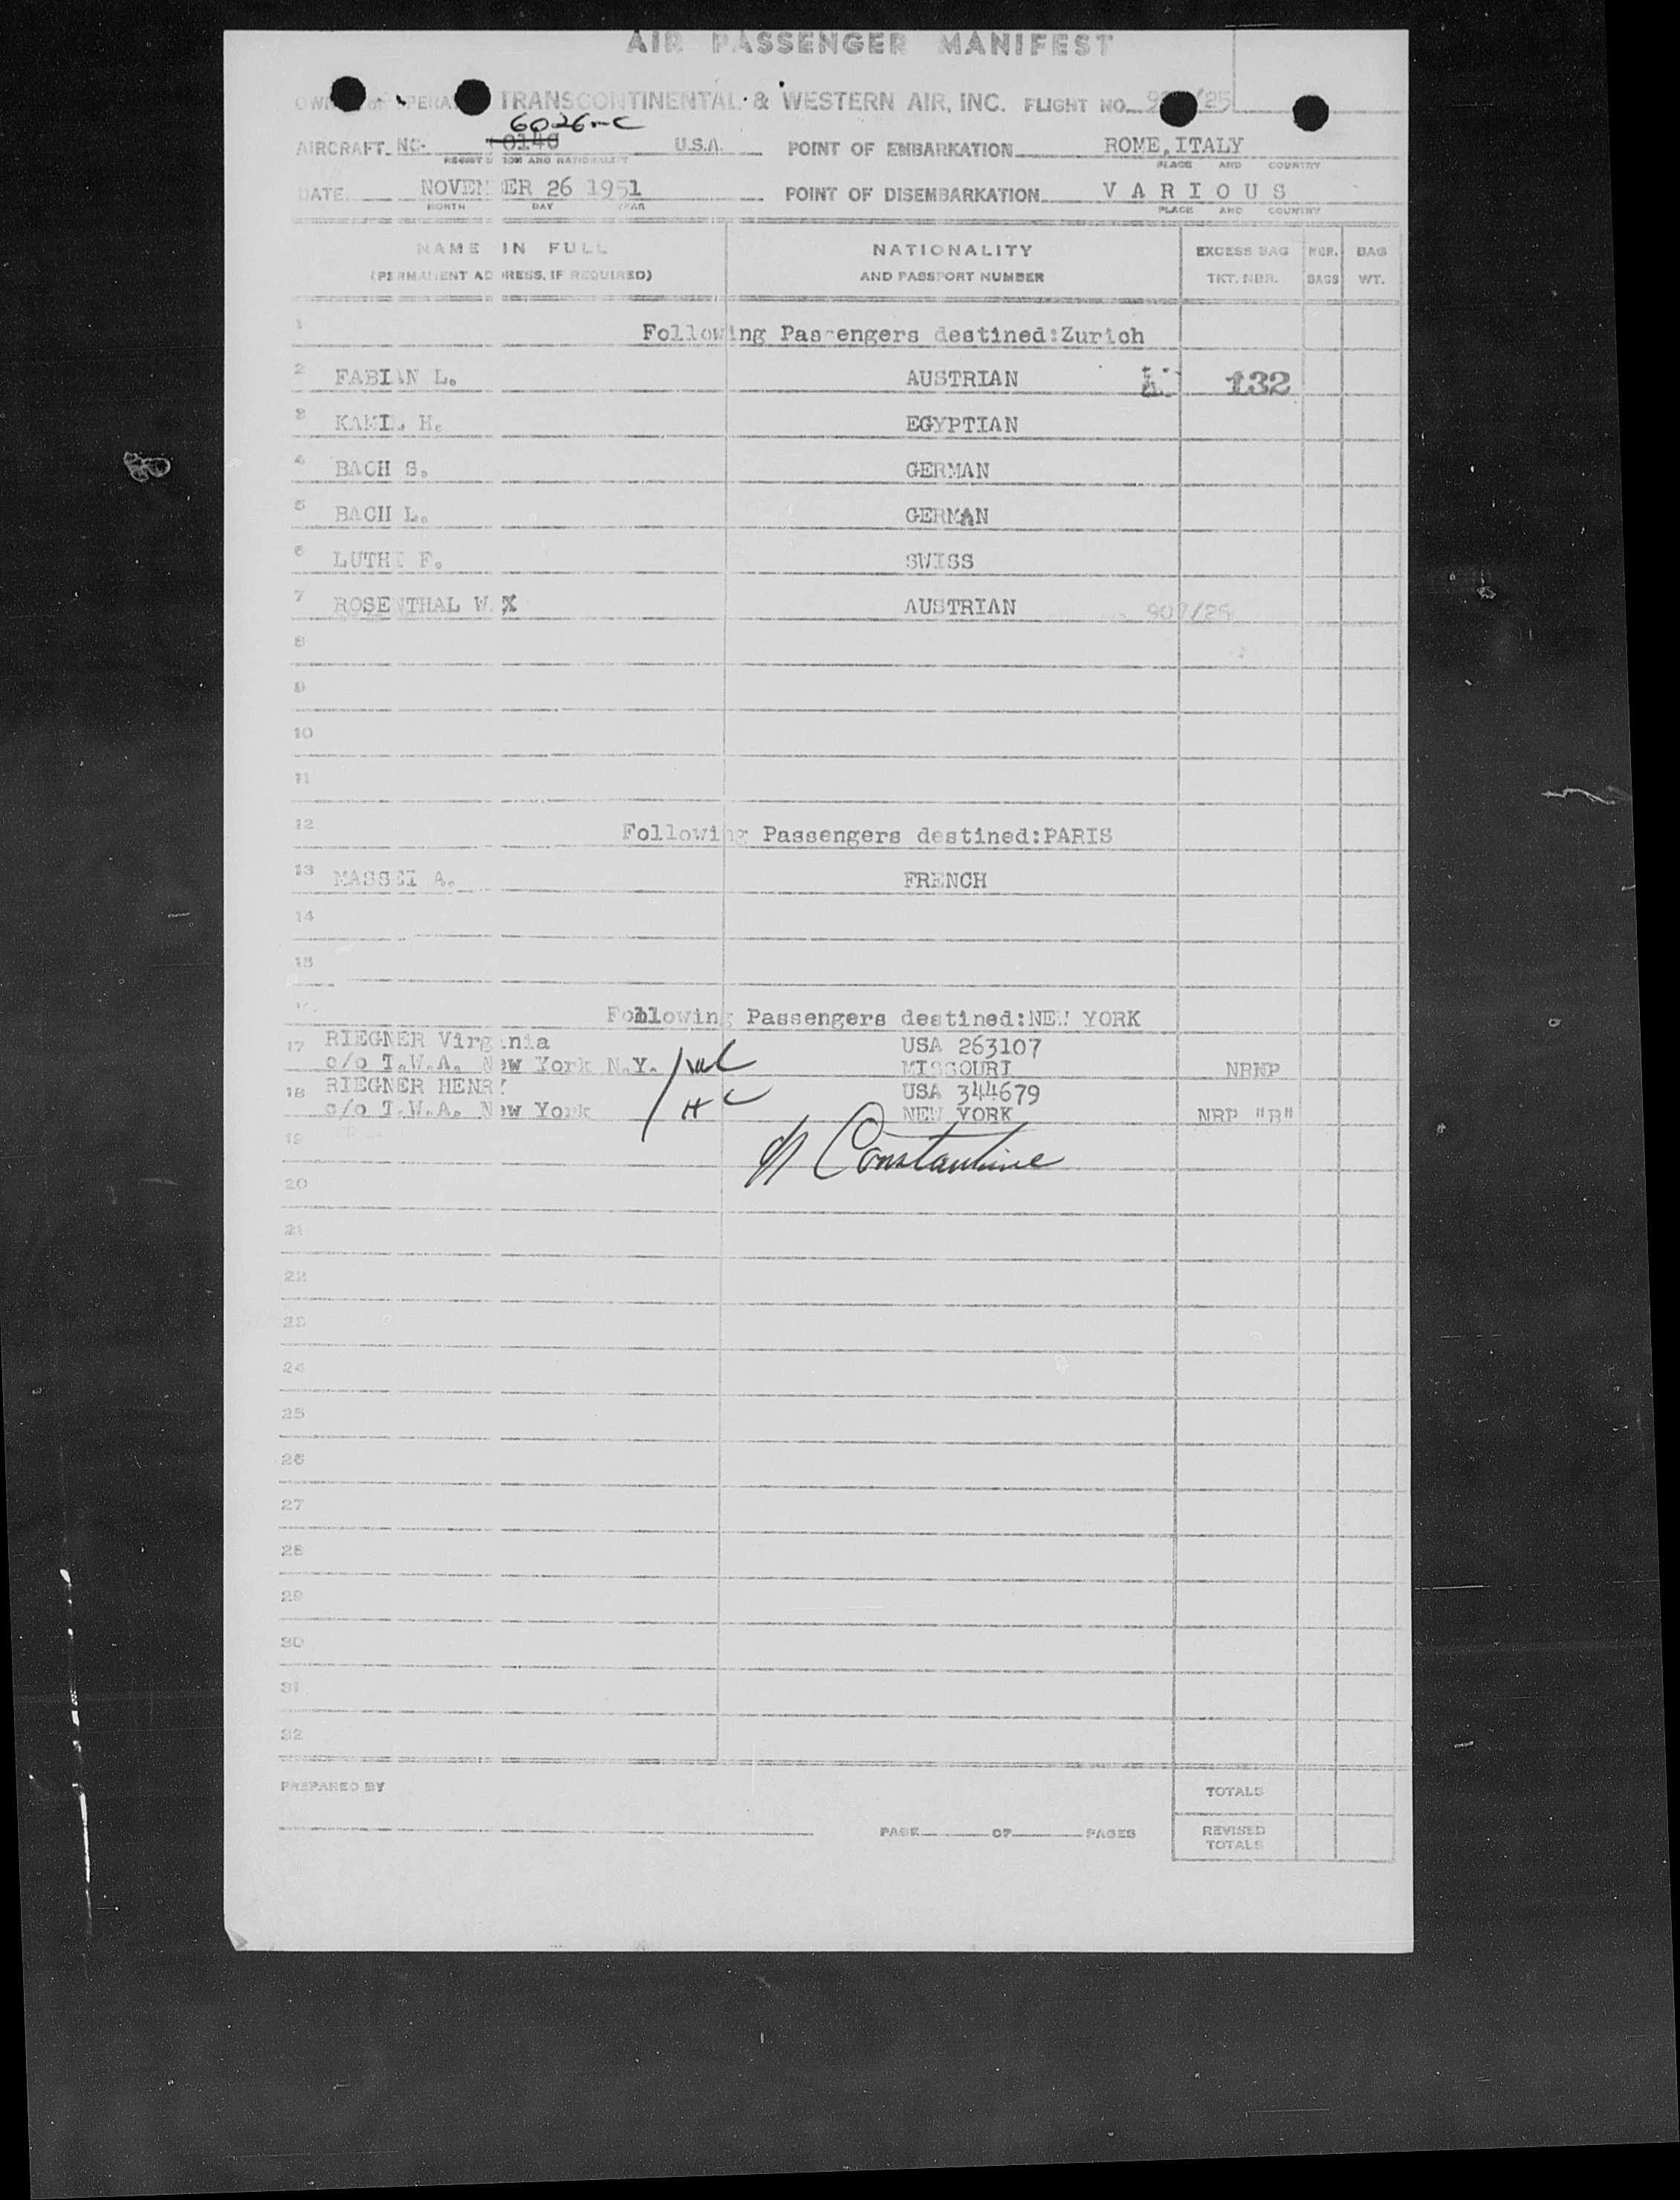 AIR PASSENGER MANIFEST
TRANSCONTINENTAL & WESTERN AIR, INC. FLIGHT NO.
6026-C
AIRCRAFT NC- 0140 U.S.A. POINT OF EMBARKATION ROME, ITALY
PLACE AND COUNTRY
DATE NOVEMBER 26 1951 POINT OF DISEMBARKATION V A R I O U S
MONTH DAY YEAR PLACE AND COUNTRY
NAME IN FULL NATIONALITY EXCESS BAG NBR. BAG
(PERMANENT ADDRESS, IF REQUIRED) AND PASSPORT NUMBER TKT. NBR. BAGS WT.
1 Following Passengers destined:Zurich
2 FABIAN L. AUSTRIAN 132
3 KAMIL H. EGYPTIAN
4 BACH S. GERMAN
5 BACH L. GERMAN
6 LUTHI F. SWISS
7 ROSENTHAL W. X AUSTRIAN 907/25
8
9
10
11
12 Following Passengers destined:PARIS
13 MASSEI A. FRENCH
14
15
Following Passengers destined:NEW YORK
17 RIEGNER Virginia USA 263107
c/o T.W.A. New York N.Y. MISSOURI NRNP
18 RIEGNER HENRY USA 344679
c/o T.W.A. New York NEW YORK NRP "B"
19 Constantine
20
21
22
23
24
25
26
27
28
29
30
31
32
PREPARED BY TOTALS
PAGE OF PAGES REVISED
TOTALS